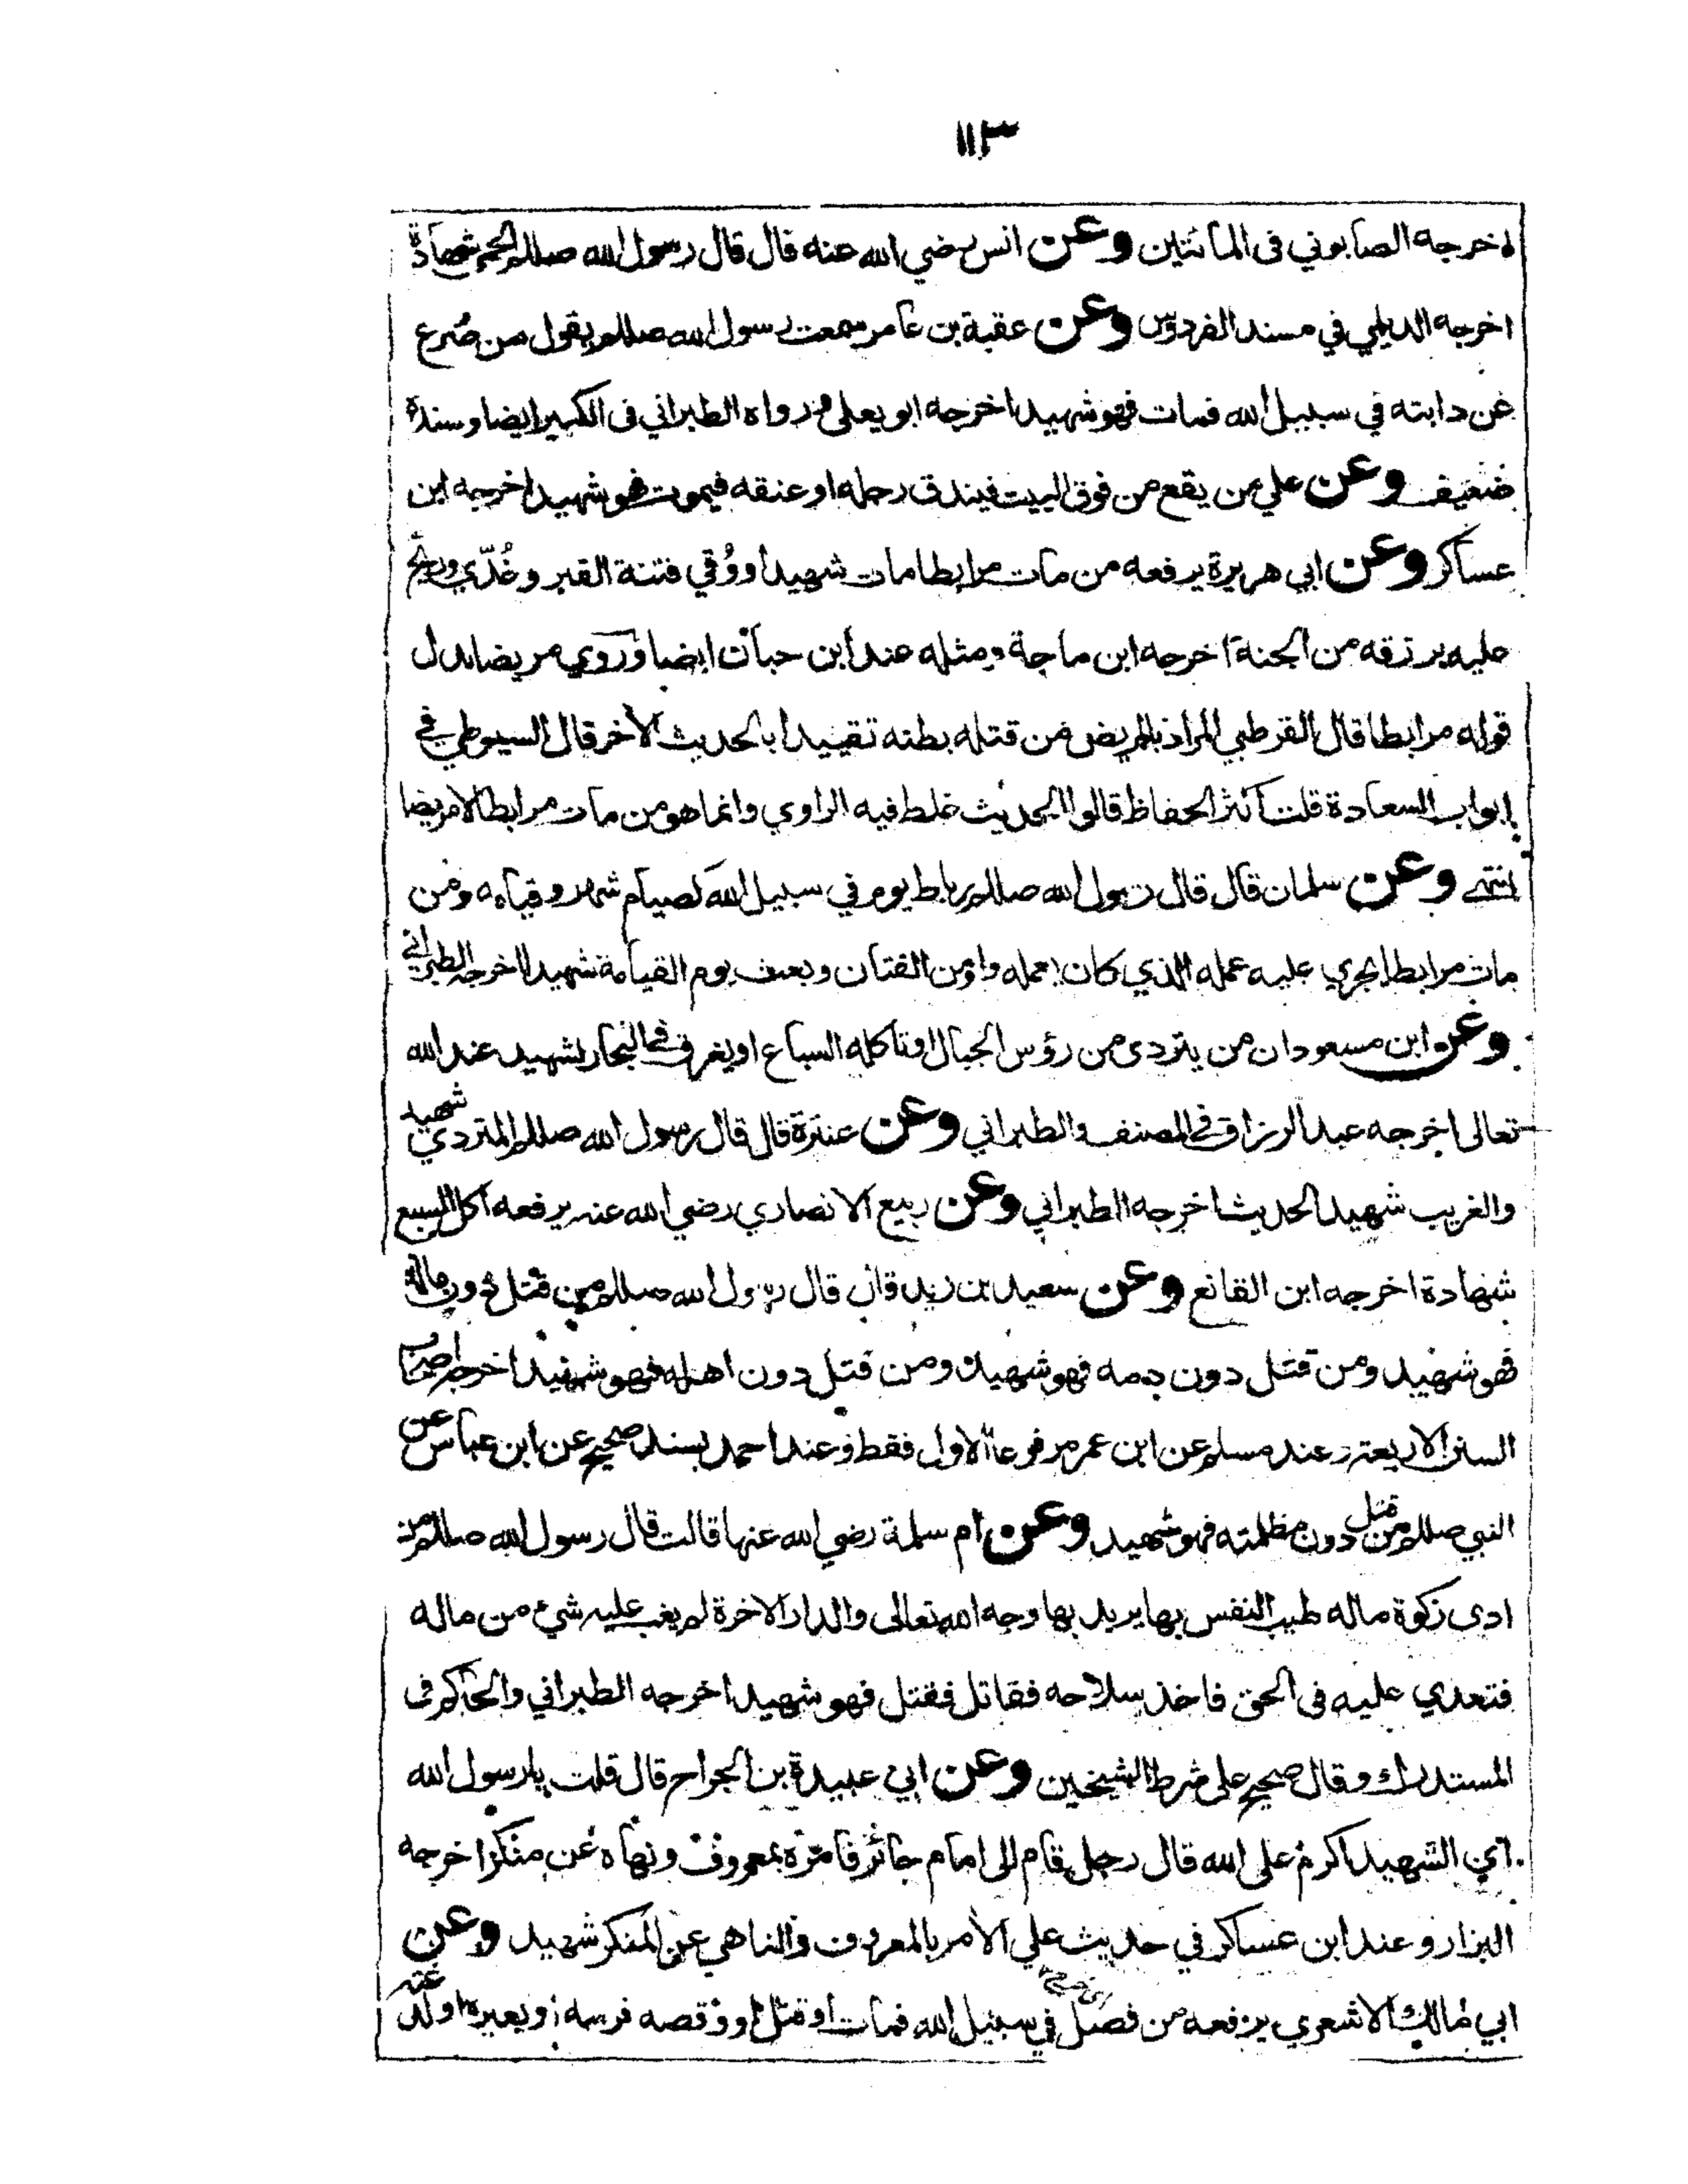 ١١٣
اخرجه الصابوني فى المائتين وعن انس رضي الله عنه قال قال رسول الله صللم الحمى شهادة
اخرجه الديلمي في مسند الفردوس وعن عقبة بن عامر سمعت رسول الله صللم يقول من صُرع
عن دابته في سبيل الله فمات فهو شهيد اخرجه ابو يعلى ورواه الطبراني فى الكبير ايضا وسنده
ضعيف وعن علي من يقع من فوق البيت فيندق رجله او عنقه فيموت فهو شهيد اخرجه ابن
عساكر وعن ابي هريرة يرفعه من مات مرابطا مات شهيدا ووُقي فتنة القبر وغُدّي وريح
عليه برزقه من الجنة اخرجه ابن ماجة ومثله عند ابن حبان ايضا وروي مريضا بدل
قوله مرابطا قال القرطبي المراد بالمريض من قتله بطنه تقييدا بالحديث الآخر قال السيوطي في
ابواب السعادة قلت اكثر الحفاظ قالوا الحديث غلط فيه الراوي وانما هو من مات مرابطا لا مريضا
انتهى وعن سلمان قال قال رسول الله صللم رباط يوم في سبيل الله كصيام شهر وقيامه ومن
مات مرابطا اجري عليه عمله الذي كان يعمله وامن الفتان وبعث يوم القيامة شهيدا اخرجه الطبراني
وعن ابن مسعود ان من يتردى من رؤس الجبال او تأكله السباع او يغرق في البحار لشهيد عند الله
تعالى اخرجه عبد الرزاق في المصنف والطبراني وعن عنترة قال قال رسول الله صللم المتردي شهيد
والغريب شهيد الحديث اخرجه الطبراني وعن ربيع الانصاري رضي الله عنه يرفعه اكل السبع
شهادة اخرجه ابن القانع وعن سعيد بن زيد قال قال رسول الله صللم من قتل دون ماله
فهو شهيد ومن قتل دون دمه فهو شهيد ومن قتل دون اهله فهو شهيد اخرجه اصحاب
السنن الاربعة وعند مسلم عن ابن عمر مرفوعا الاول فقط وعند احمد بسند صحيح عن ابن عباس عن
النبي صللم من قتل دون مظلمته فهو شهيد وعن ام سلمة رضي الله عنها قالت قال رسول الله صللم من
ادى زكوة ماله طيب النفس بها يريد بها وجه الله تعالى والدار الاخرة لم يغب عليه شيء من ماله
فتعدي عليه فى الحق فاخذ سلاحه فقاتل فقتل فهو شهيد اخرجه الطبراني والحاكم فى
المستدرك وقال صحيح على شرط الشيخين وعن ابي عبيدة بن الجراح قال قلت يا رسول الله
اي الشهيد اكرم على الله قال رجل قام الى امام جائر فامره بمعروف ونهاه عن منكر اخرجه
البزار وعند ابن عساكر في حديث علي الآمر بالمعروف والناهي عن المنكر شهيد وعن
ابي مالك الاشعري يرفعه من فصل في سبيل الله فمات او قتل او وقصه فرسه او بعيره او لدغته